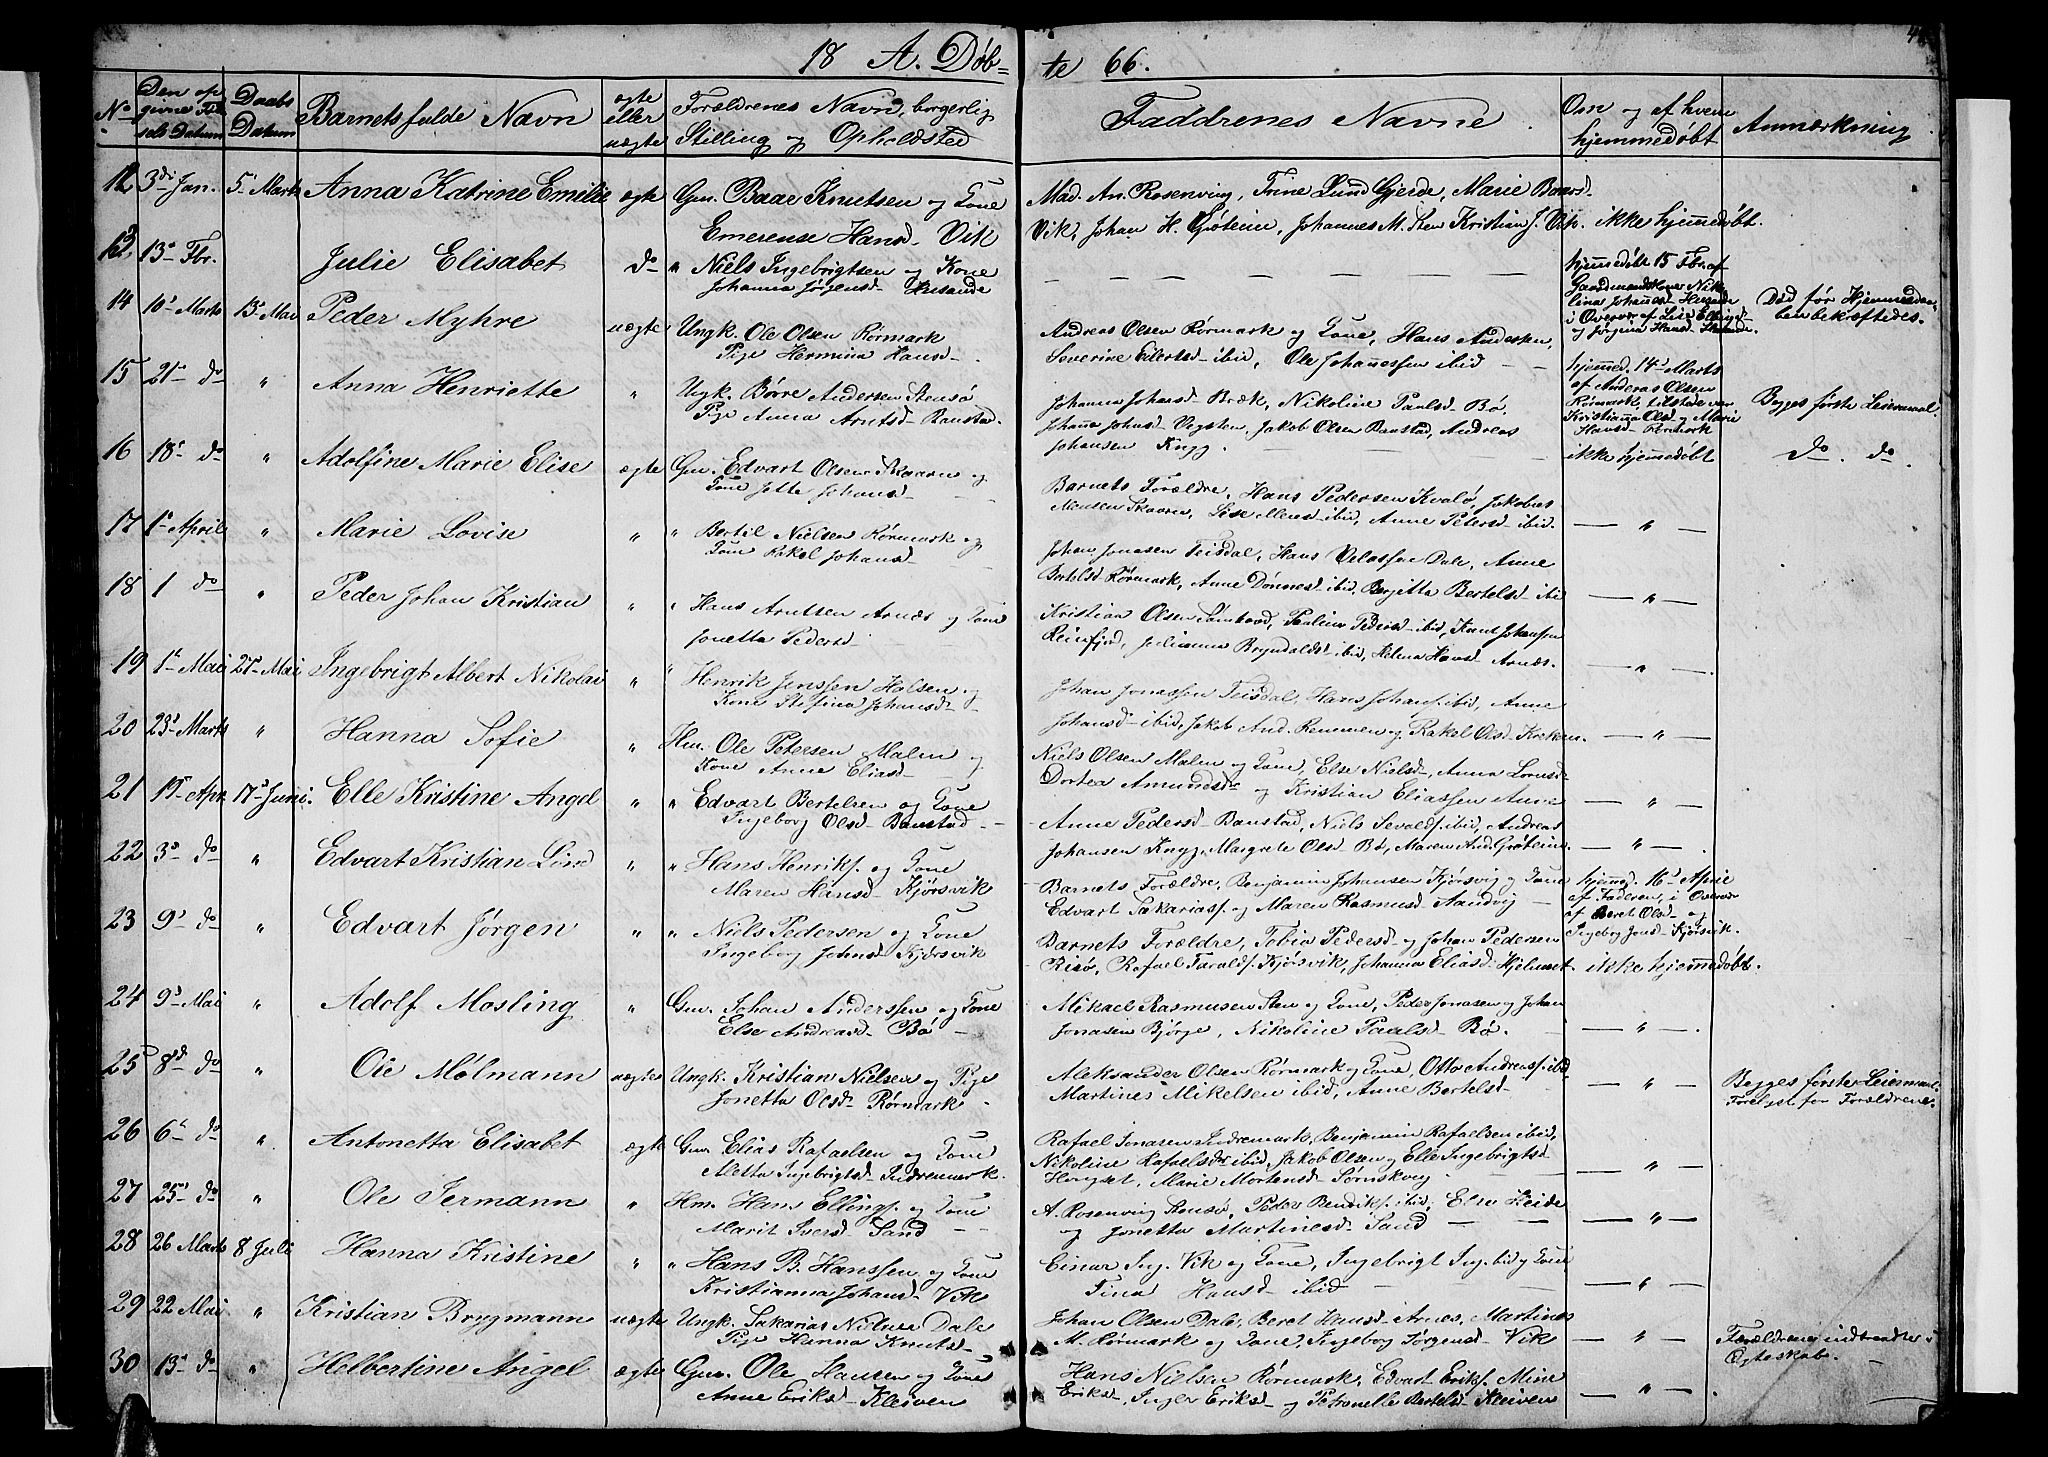 18 A. Døb=
te 66.
No
Den op
givne Fød
sels Datum
Daabs
Datum
Barnets fulde Navn
ægte
eller
uægte
Forældrenes Navn, borgerlig
Stilling og Opholdsted
Faddrenes Navne
Om og af hvem
hjemmedøbt
Anmærkning
12 3d Jan. 5t Marts Anna Katrine Emilie ægte Gm. Baar Knutsen og Kone
Emerense Hansd. Vik
Mad. An. Rosenving, Trine Lund Gjerde, Marie
Vik, Johan H. Grøteim, Johannes M. Sten Kristian J. Vik. ikke hjemmedøbt.
13 13d Fbr. Julie Elisabet do " Niels Ingebrigtsen og Kone
Johanna Jørgensd.
hjemmedøbt 15 Fbr. af
Gaardmandskoner Niko
lina Johannesd.
i Overvær af
og Jørgina Hansd.
Død før Hjemmedaa
ben bekræftedes.
14 10d Marts 13d Mai Peder Myhre uægte Ungk. Ole Olsen Rørmark
Pige Hermina Hansd.
Andreas Olsen Rørmark og Kone, Hans Andersen,
Severine Eilertsd. ibid, Ole Johanessen ibid
hjemmed. 14d Marts
af Anderas Olsen
Rørmark, tilstede var
Kristianna Olsd og Marie
Hansd. Rørmark
Begges første Leiermaal.
15 21d do " Anna Henriette " Ungk. Børre Andersen Stensø
Pige Anna Arntsd. Banstad.
Johanna Johansd. Bræk, Nikoline Paalsd. Bø,
Johanna Johnsd. Vegsten, Jakob Olsen Banstad, Andreas
Johansen Knyg.
ikke hjemmedøbt
do. do.
16 18d do " Adolfine Marie Elise ægte Gm. Edvart Olsen Skaaren og
Kone Jette Johansd.
Barnets Forældre, Hans Pedersen Kvalø, Jakobas
Monsen Skaaren, Lise Monsd. ibid, Anne Petersd. ibid. — " —
17 1d April " Marie Lovise " " Bertil Nielsen Rørmark og
Kone Rikel Johansd.
Johan Jonasen Teisdal, Hans Velassen Dale, Anne
Bertelsd. Rørmark, Anne Dønnesd. ibid, Bergitta Bertelsd. ibi — " —
18 1 do " Peder Johan Kristian " " Hans Arntsen Arnæs og Kone
Jonetta Pedersd.
Kristian Olsen Pauline Pedersd. ibid, Knut Johansen
Reinfjord, Brynjaldsd. ibid, Helena Hansd. Arnæs. — " —
19 1d Mai 21d Mai Ingebrigt Albert Nikolai " " Henrik Jenssen Holsen og
Kone Stefina Johansd.
Johan Jonassen Teisdal, Hans Johans. ibid, Anne
Johansd. ibid, Jakob And. Renemen og Rakel Olsd. — " —
20 23d Marts " Hanna Sofie " Hm. Ole Petersen Malm og
Kone Anne Eliasd.
Niels Olsen Malm og Kone, Else Nielsd., Anna
Dortea Amundsd. og Kristian Eliassen Aune — " —
21 19d Apr. 17d Juni. Elle Kristine Angel " " Edvart Bertelsen og Kone
Ingeborg Olsd. Banstad
Anne Pedersd. Banstad, Niels Sevalds. ibid, Andreas
Johansen Knyg, Margrete Olsd. Bø, Maren And. Grøteim. — " —
22 3d do " Edvart Kristian Lund " " Hans Henriks. og Kone
Maren Hansd. Kjørsvik
Barnets Forældre, Benjamin Johansen Kjørsvig og Kone
Edvart Sakarias. og Maren Rasmusd. Aandvig
hjemmd. 16d April
af Faderen, i Overvær
af Beret Olsd. og
Ingeborg Jonsd. Kjørsvik.
23 9d do " Edvart Jørgen " " Niels Pedersen og Kone
Ingeborg Johnsd. Kjørsvik
Barnets Forældre, Tobia Pedersd. og Johan Pedersen
Risø, Rafael Taralds. Kjørsvik, Johanna Eliasd. ikke hjemmedøbt.
24 9d Mai " Adolf Mosling " Gm. Johan Anderssen og Kone
Else Andreasd. Bø
Mikael Rasmusen Sten og Kone, Peder Jonasen og Johan
Jonasen Bjørge, Nikoline Paalsd. Bø. — " —
25 8d do " Ole Mølmann uægte Ungk. Kristian Nielsen og Pige
Jonetta Olsd. Rørmark
Aleksander Olsen Rørmark og Kone, Otto Andreass. ibid
Martines Mikelsen ibid, Anne Bertelsd. — " —
Begges første Leiermaal.
Forelyst for Forældrene.
26 6d do " Antonetta Elisabet ægte Gm. Elias Rafaelsen og Kone
Aletta Ingebrigtsd. Indremark.
Rafael Jonasen Indremark, Benjamin Rafaelsen ibid,
Nikoline Rafaelsd. ibid, Jakob Olsen og Elle Ingebrigtsd.
Hongset, Marie Mortensd. Sørnskvey — " —
27 25d do " Ole Jermann " Hm. Hans Ellings. og Kone
Marit Iversd. Sand
A. Rosenving Stensø, Peder Bendriks. ibid, Else Heide
og Jonetta Martinesd. Sand — " —
28 26 Marts 8 Juli Hanna Kristine " " Hans B. Hanssen og Kone
Kristianna Johansd. Vik
Einar Ing. Vik og Kone, Ingebrigt Ing. ibid og Kone
Tina Hansd. ibid — " —
29 22 Mai " Kristian Brygmann uægte Ungk. Sakarias Nielsen Dale
Pige Hanna Knutsd.
Johan Olsen Dale, Beret Hansd. Arnes, Martines
M. Rørmark og Kone, Ingeborg Jørgensd. Vik — " —
Forældrene indtraadte i
Ægteskab.
30 13d do " Helbertine Angel ægte Gm. Ole Hansen og Kone
Anne Eriksd. Kleiven
Hans Nielsen Rørmark, Edvart Eriks. Mine
Eriksd., Inger Eriksd. og Petronelle Bertelsd. Kleiven — " —